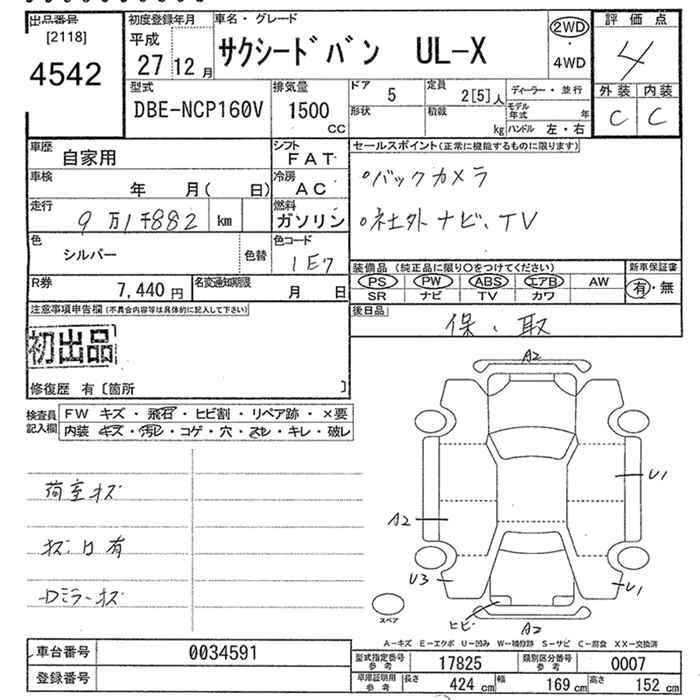 出品番号
[2118]
4542
初度登録年月
平成
27 12 月
車名・グレード
サクシードバン UL-X
2WD
・
4WD
評価点
4
外装 内装
C C
型式
DBE-NCP160V
排気量
1500
CC
ドア
5
形状
定員
2[5]人
積載
kg
ディーラー・並行
モデル年式 年
ハンドル 左・右
車歴
自家用
シフト
FAT
車検
年 月( 日)
冷房
AC
走行
9万1千882 km
燃料
ガソリン
色
シルバー
色替
色コード
1E7
R券
7,440 円
名変通知期限
月 日
セールスポイント(正常に機能するものに限ります)
○バックカメラ
○社外ナビ、TV
装備品(純正品に限り○をつけてください)
PS PW ABS エアB AW
SR ナビ TV カワ
新車保証書
有・無
後日品
保、取
注意事項申告欄(不具合内容等は具体的に記入して下さい)
初出品
修復歴 有〔箇所 〕
検査員記入欄
FW キズ・飛石・ヒビ割・リペア跡・×要
内装 キズ・汚レ・コゲ・穴・スレ・キレ・破レ
荷室キズ
キズ・凹有
Dミラーキズ
A2
U1
A2
U3
U1
ヒビ
A2
スペア
A－キズ E－エクボ U－凹み W－補修跡 S－サビ C－腐食 XX－交換済
車台番号
0034591
登録番号
型式指定番号
参考
17825
類別区分番号
参考
0007
車庫証明用
参考
長さ 424 cm 幅 169 cm 高さ 152 cm